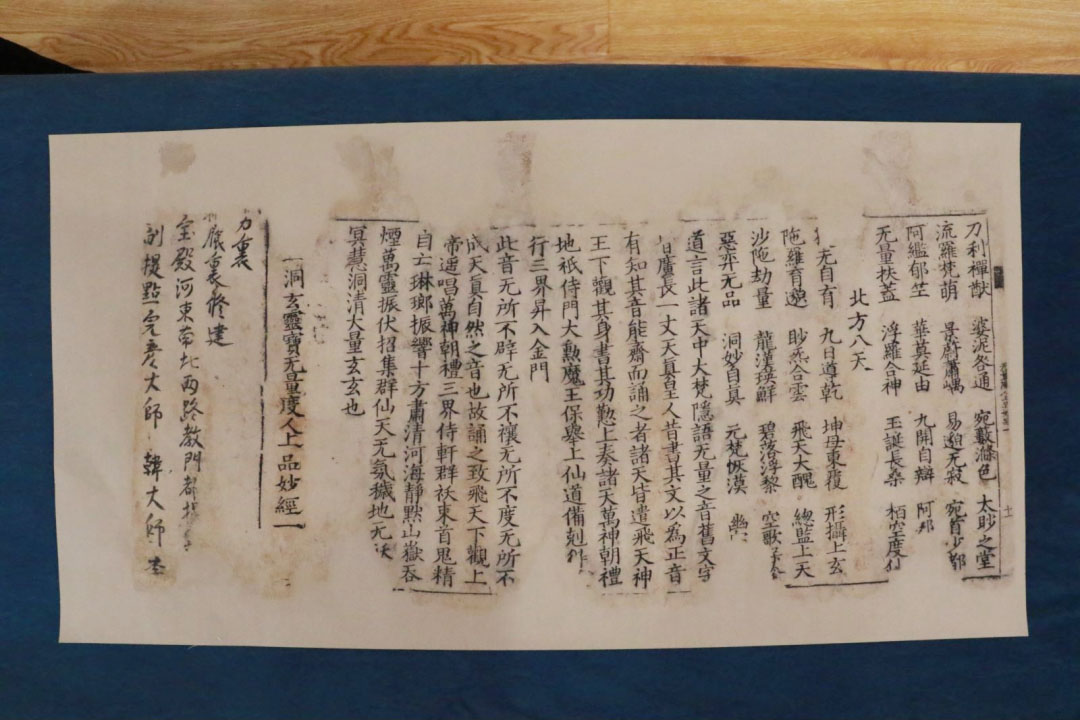 刀利禪猷 婆泥各通 宛藪滌色 太眇之堂
流羅梵萌 景蔚蕭嵎 易邈无寂 宛首少都
阿䍤郁竺 華莫延由 九開自辯 阿那
无量扶蓋 浮羅合神 玉誕長桑 栢空度仙
北方八天
无自育 九日導乾 坤母東覆 形攝上玄
陁羅育邈 眇炁合雲 飛天大醜 總監上天
沙陁劫量 龍漢瑛鮮 碧落浮黎 空歌
惡弈无品 洞妙自真 元梵恢漠 幽
道言此諸天中大梵隱語无量之音舊文字
皆廣長一丈天真皇人昔書其文以為正音
有知其音能齋而誦之者諸天皆遣飛天神
王下觀其身書其功勤上奏諸天萬神朝禮
地祇侍門大勳魔王保舉上仙道備剋
行三界昇入金門
此音无所不辟无所不禳无所不度无所不
成天真自然之音也故誦之致飛天下觀上
帝遥唱萬神朝禮三界侍軒群袄束首鬼精
自亡琳瑯振響十方肅清河海靜默山嶽吞
煙萬靈振伏招集群仙天无氛穢地无
冥慧洞清大量玄玄也
洞玄靈寶无量度人上品妙經
力裏
殿裏修建
宝殿河東南北两路教門都提
副提點 大師 韓大師